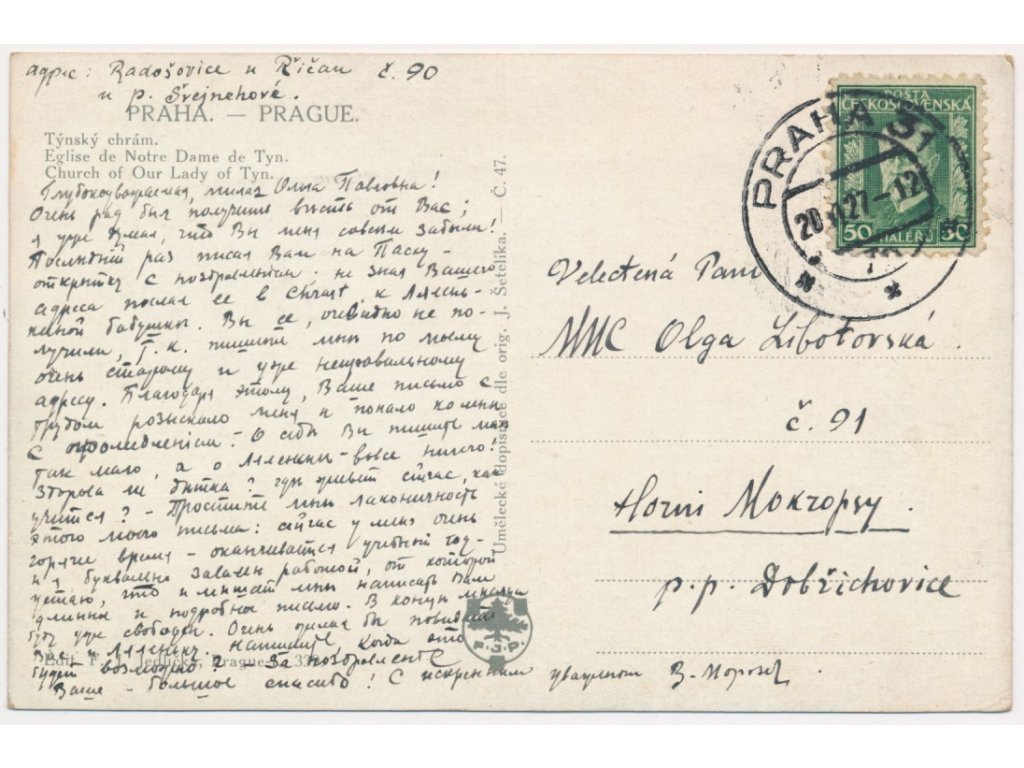 адрес: Radošovice u Řičan č. 90
u p. Švejnehové.
PRAHA. — PRAGUE.
Týnský chrám.
Eglise de Notre Dame de Tyn.
Church of Our Lady of Tyn.
Глубокоуважаемая, милая Ольга Павловна!
Очень рад был получить вѣсть от Вас;
я уже думал, что Вы меня совсем забыли!
Послѣдній раз писал Вам на Пасху -
открытку с поздравленіем. Не зная Вашего
адреса послал ее в Chrast, к Лялень-
киной бабушкѣ. Вы ее, очевидно не по-
лучили, т. к. пишите мнѣ по моему
очень старому и уже неправильному
адресу. Благодаря этому, Ваше письмо с
трудом розыскало меня и попало ко мнѣ
с промедленіем. - О себѣ Вы пишите мнѣ
так мало, а о Лялєньки - вовсе ничего!
Здорова ли дѣтка? гдѣ живет сейчас, как
учится? - Простите мнѣ лаконичность
этого моего письма: сейчас у меня очень
горячее время - оканчивается учебный год -
и я буквально завален работой, от которой
устаю, что и мѣшает мнѣ написать Вам
длинное и подробное письмо. В концѣ мѣсяца
буду уже свободен. Очень желал бы повидать
Вас и Ляленьку. Напишите, когда это
будет возможно? За поздравленіе
Ваше - большое спасибо! С искренним уваженіем В. Морозов.
Edit. F. J. Jedlička, Prague
Umělecké dopisnice dle orig. J. Šetelíka. — Č. 47.
F. J. P.
POŠTA
ČESKOSLOVENSKÁ
50 HALÉŘŮ 50
PRAHA 31
27-12
Velectěná Paní
Olga Libotovská.
č. 91
Horni Mokropsy.
p. p. Dobřichovice